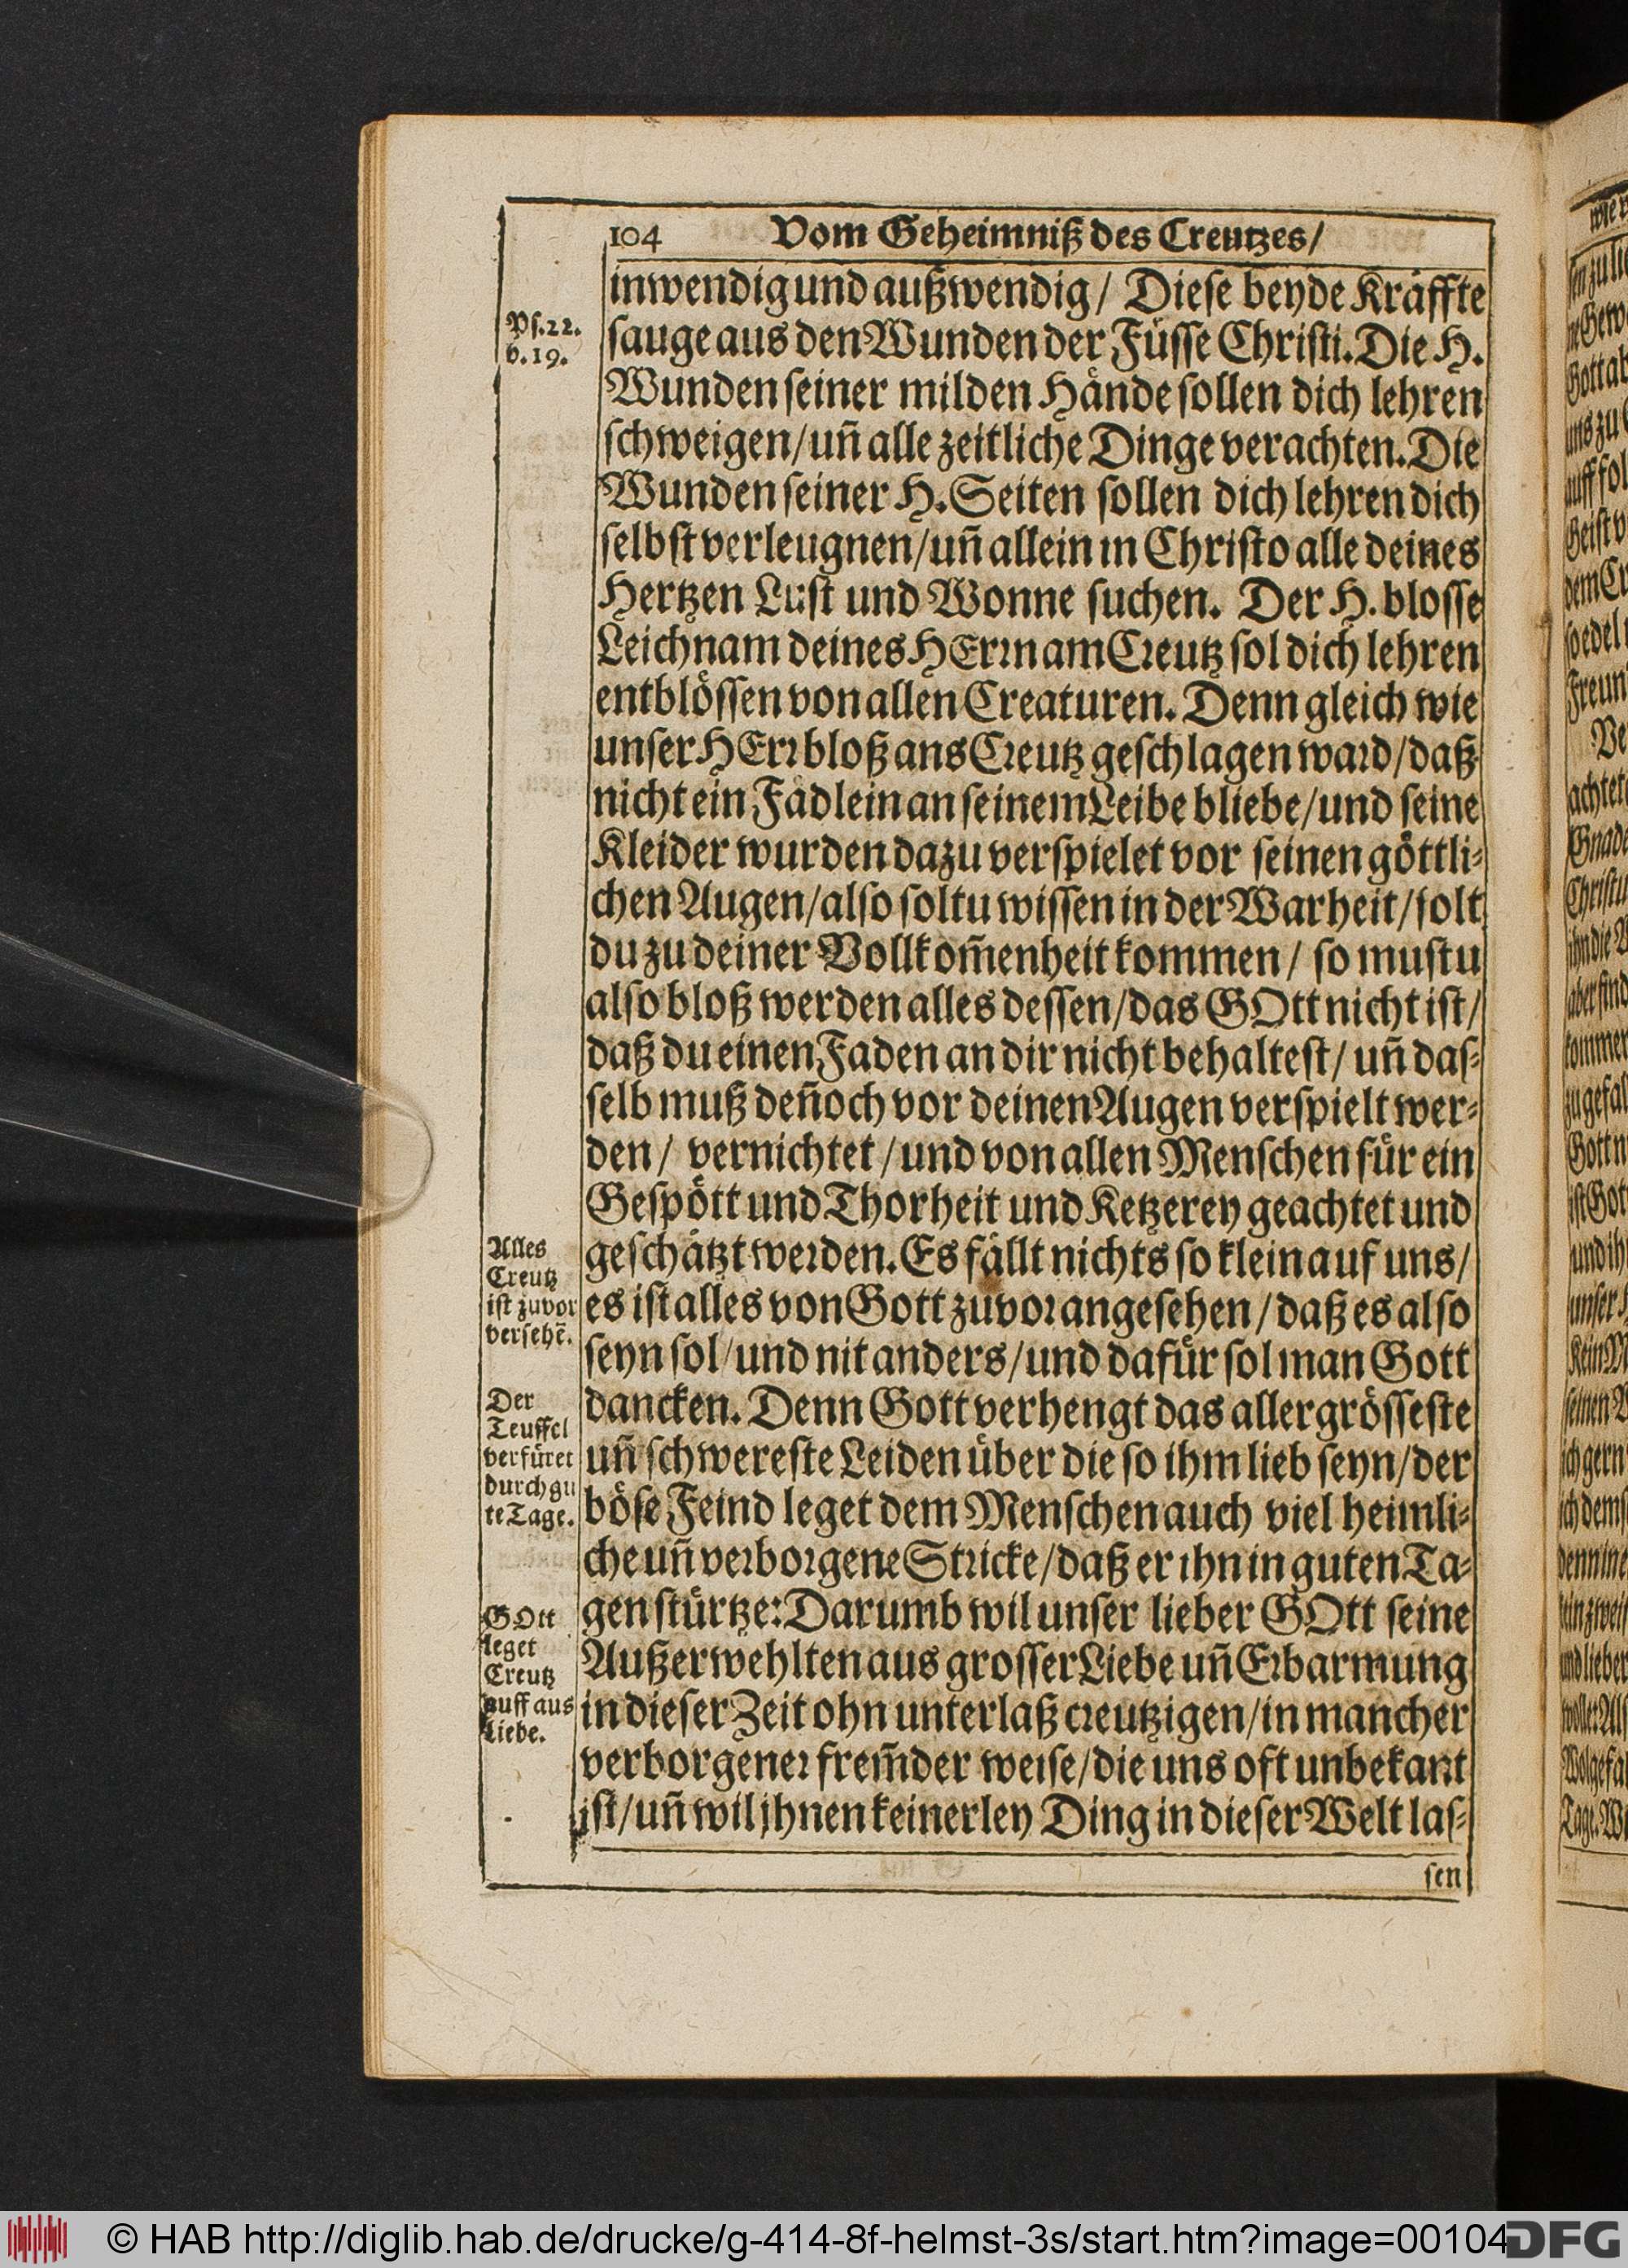 104 Vom Geheimniß des Creutzes/
inwendig und außwendig/ Diese beyde Kräffte
Ps.22.
v.19.
sauge aus den Wunden der Füsse Christi. Die H.
Wunden seiner milden Hände sollen dich lehren
schweigen/ uñ alle zeitliche Dinge verachten. Die
Wunden seiner H. Seiten sollen dich lehren dich
selbst verleugnen/ uñ allein in Christo alle deines
Hertzen Lust und Wonne suchen. Der H. blosse
Leichnam deines HErrn am Creutz sol dich lehren
entblössen von allen Creaturen. Denn gleich wie
unser HErr bloß ans Creutz geschlagen ward/ daß
nicht ein Fädlein an seinem Leibe bliebe/ und seine
Kleider wurden dazu verspielet vor seinen göttli-
chen Augen/ also soltu wissen in der Warheit/ solt
du zu deiner Vollkom̃enheit kommen/ so mustu
also bloß werden alles dessen/ das GOtt nicht ist/
daß du einen Faden an dir nicht behaltest/ uñ das-
selb muß deñoch vor deinen Augen verspielt wer-
den/ vernichtet/ und von allen Menschen für ein
Gespött und Thorheit und Ketzerey geachtet und
geschätzt werden. Es fällt nichts so klein auf uns/
es ist alles von Gott zuvor angesehen/ daß es also
seyn sol/ und nit anders/ und dafür sol man Gott
dancken. Denn Gott verhengt das allergrösseste
uñ schwereste Leiden über die so ihm lieb seyn/ der
böse Feind leget dem Menschen auch viel heimli-
che uñ verborgene Stricke/ daß er ihn in guten Ta-
gen stürtze: Darumb wil unser lieber GOtt seine
Außerwehlten aus grosser Liebe uñ Erbarmung
in dieser Zeit ohn unterlaß creutzigen/ in mancher
verborgener frem̃der weise/ die uns oft unbekant
ist/ uñ wil jhnen keinerley Ding in dieser Welt las-
sen
Alles
Creutz
ist zuvor
versehẽ.
Der
Teuffel
verfüret
durch gu
te Tage.
GOtt
leget
Creutz
auff aus
Liebe.
© HAB http://diglib.hab.de/drucke/g-414-8f-helmst-3s/start.htm?image=00104
DFG